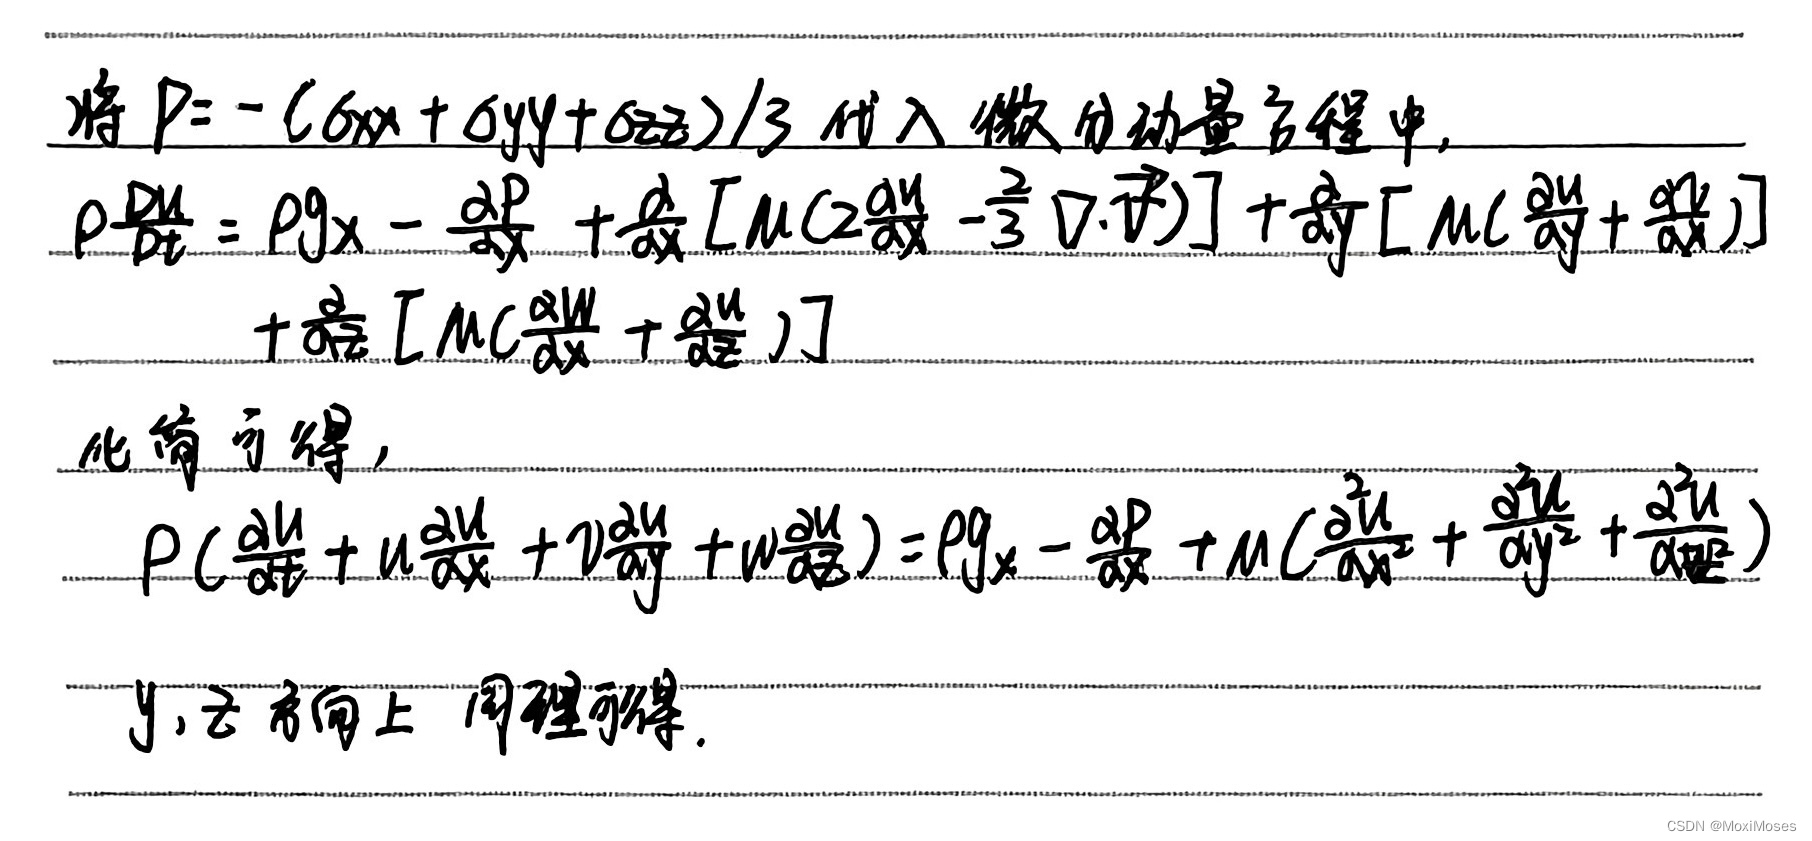 将 P = -(σxx + σyy + σzz)/3 代入微分动量方程中,
ρ Du/Dt = ρgx - ∂P/∂x + ∂/∂x [μ(2 ∂u/∂x - 2/3 ∇·V⃗)] + ∂/∂y [μ(∂u/∂y + ∂v/∂x)]
+ ∂/∂z [μ(∂w/∂x + ∂u/∂z)]
化简可得,
ρ(∂u/∂t + u ∂u/∂x + v ∂u/∂y + w ∂u/∂z) = ρgx - ∂P/∂x + μ(∂²u/∂x² + ∂²u/∂y² + ∂²u/∂z²)
y,z 方向上 同理可得.
CSDN @MoxiMoses